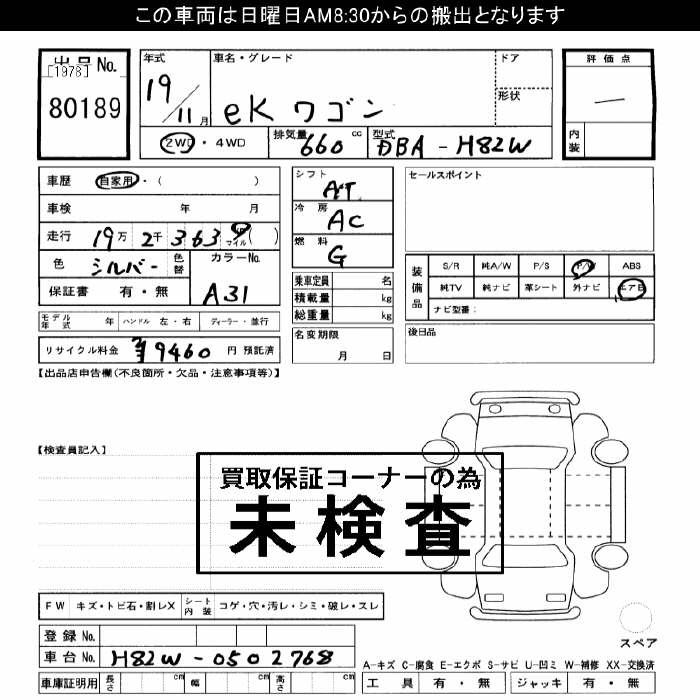 この車両は日曜日AM8:30からの搬出となります
出品No.
[1978]
80189
年式
19/11月
車名・グレード
eK ワゴン
ドア
形状
評価点
—
内装
2WD・4WD
排気量 660 cc
型式 DBA-H82W
車歴 自家用・( )
車検 年 月
走行 19万 2千 3 6 3 9 マイル( )
色 シルバー 色替
カラーNo. A31
保証書 有・無
シフト AT
冷房 AC
燃料 G
乗車定員 名
積載量 kg
総重量 kg
名変期限 月 日
セールスポイント
装備品
S/R 純A/W P/S P/W ABS
純TV 純ナビ 革シート 外ナビ エアB
ナビ型番:
後日品
モデル年式 年 ハンドル 左・右 ディーラー・並行
リサイクル料金 ¥9460 円 預託済
【出品店申告欄(不良箇所・欠品・注意事項等)】
【検査員記入】
買取保証コーナーの為
未検査
FW キズ・トビ石・割レX シート内装 コゲ・穴・汚レ・シミ・破レ・スレ
登録No.
車台No. H82W-0502768
車庫証明用 長さ cm 幅 cm 高さ cm
スペア
A-キズ C-腐食 E-エクボ S-サビ U-凹ミ W-補修 XX-交換済
工具 有・無 ジャッキ 有・無